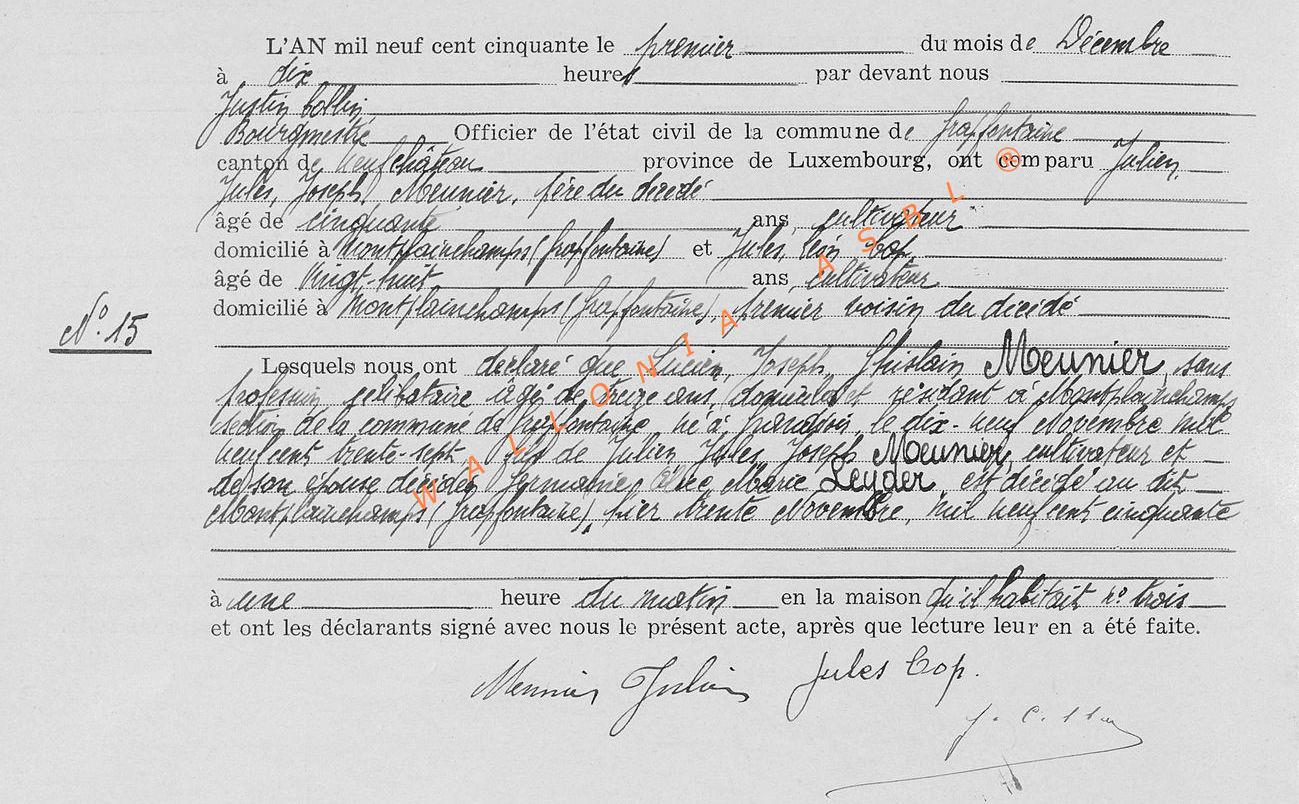 L'AN mil neuf cent cinquante le premier du mois de Décembre
à dix heures par devant nous
Justin Collin
Bourgmestre Officier de l'état civil de la commune de Grapfontaine
canton de Neufchâteau province de Luxembourg, ont comparu Julien,
Jules, Joseph, Meunier, père du décédé
âgé de cinquante ans, cultivateur
domicilié à Montplainchamps (Grapfontaine) et Jules, Léon Cop,
âgé de vingt-huit ans, cultivateur
domicilié à Montplainchamps (Grapfontaine), premier voisin du décédé
N° 15
Lesquels nous ont déclaré que Lucien, Joseph, Ghislain Meunier, sans
profession célibataire âgé de treize ans, domicilié et résidant à Montplainchamps
section de la commune de Grapfontaine, né à le dix-neuf Novembre mil
neuf cent trente-sept, fils de Julien Jules Joseph Meunier, cultivateur et
de son épouse décédée Germaine, Marie Leyder est décédé au dit
Montplainchamps (Grapfontaine), hier trente Novembre, mil neuf cent cinquante
à une heure du matin en la maison qu'il habitait n° trois
et ont les déclarants signé avec nous le présent acte, après que lecture leur en a été faite.
Meunier Julien Jules Cop.
WALLONIA ASBL ®